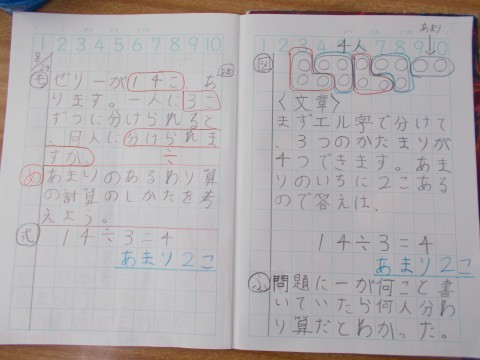 1 2 3 4 5 6 7 8 9 10
8/
も ゼリーが14こ あ
ります。一人に3こ
ずつに分けられると
、何人に分けられま
すか ÷
め あまりのあるわり算
の計算のしかたを考
えよう。
式 14÷3=4
あまり2こ
あまり
1 2 3 4人 7 8 9 10
図
〈文章〉
まずエル字で分けて
、3つのかたまりが
4つできます。あま
りのいちに2こある
ので答えは、
14÷3=4
あまり2こ
ふ 問題に一が何こと書
いていたら何人分わ
り算だとわかった。